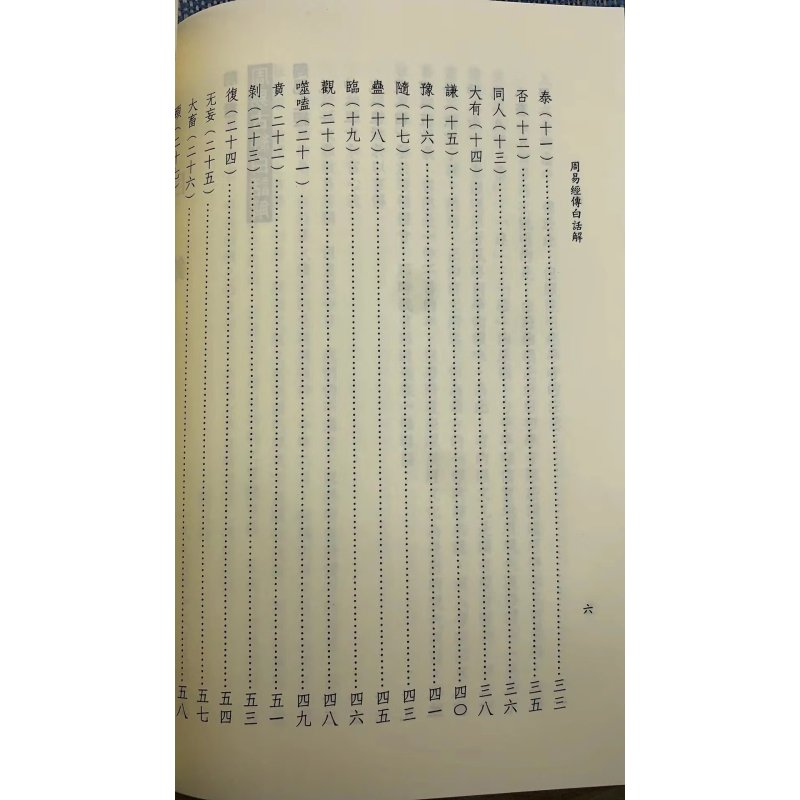 周易經傳白話解
六
泰（十一）……三三
否（十二）……三五
同人（十三）……三六
大有（十四）……三八
謙（十五）……四〇
豫（十六）……四一
隨（十七）……四三
蠱（十八）……四五
臨（十九）……四六
觀（二十）……四八
噬嗑（二十一）……四九
賁（二十二）……五一
剝（二十三）……五三
復（二十四）……五四
无妄（二十五）……五七
大畜（二十六）……五八